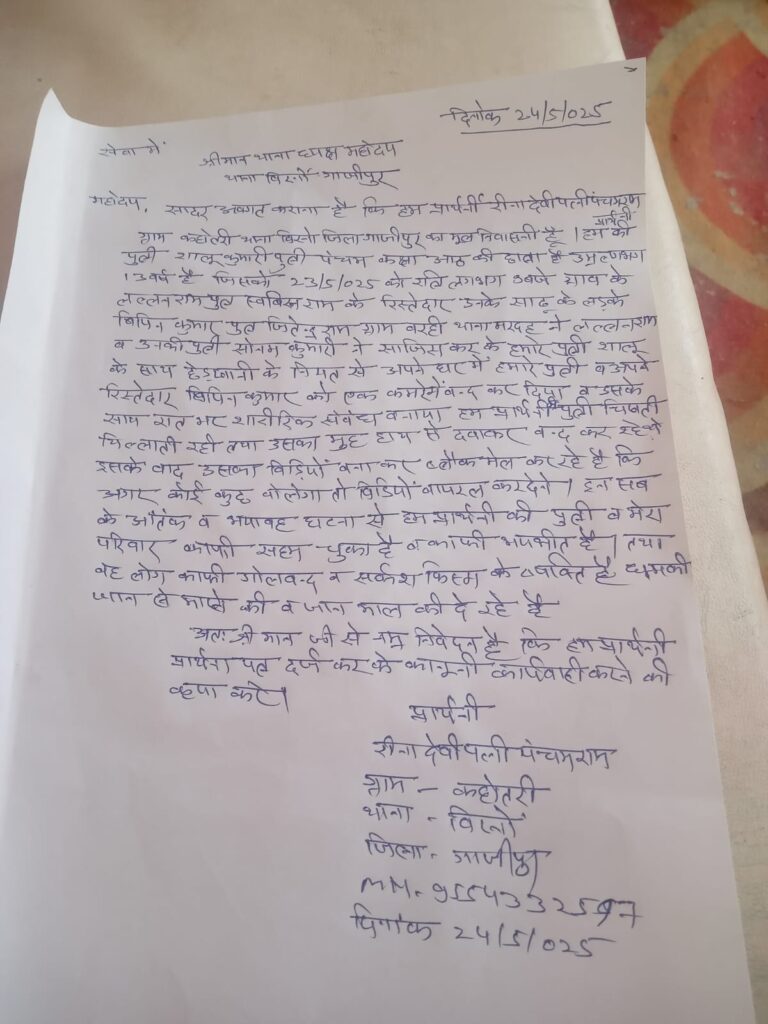 दिनांक 24/5/025
सेवा में
श्रीमान थाना ध्यक्ष महोदय
थाना बिरनों गाजीपुर
महोदय, सादर अवगत कराना है कि हम प्रार्थनी रीना देवी पत्नी पंचमराम
ग्राम थाना बिरनो जिला गाजीपुर का मूल निवासनी हूँ। हम प्रार्थनी की
पुत्री शालू कुमारी पुत्री पंचम कक्षा आठ की छात्रा है उम्र लगभग
13 वर्ष है जिसको 23/5/025 को रात्रि लगभग बजे गाव के
लल्लनराम पुत्र राम के रिस्तेदार उनके साढू के लड़के
बिपिन कुमार पुत्र जितेन्द्र राम ग्राम वरही थाना मरदह ने लल्लनराम
व उनकी पुत्री सोनम कुमारी ने साजिस कर के हमारे पुत्री शालू
के साथ के नियत से अपने घर में हमारे पुत्री व अपने
रिस्तेदार बिपिन कुमार को एक कमरे में बन्द कर दिया व उसके
साथ रात भर शारीरिक संबंध बनाया हम प्रार्थनी की पुत्री चिखती
चिल्लाती रही तथा उसका मुह हाथ से दवाकर बन्द कर रहे थे
इसके बाद उसका विडियों बना कर ब्लैक मेल कर रहे है कि
अगर कोई कुछ बोलेगा तो विडियों वायरल कर देगे। इन सब
के आतंक व भयावह घटना से हम प्रार्थनी की पुत्री व मेरा
परिवार काफी सहम चुका है व काफी भयभीत है। तथा
वह लोग काफी गोलबन्द व सर्कश किस्म के व्यक्ति है धमकी
जान से मारने की व जान माल की दे रहे है
अतः श्री मान जी से नम्र निवेदन है कि हम प्रार्थनी
प्रार्थना पत्र दर्ज कर के कानूनी कार्यवाही करने की
कृपा करे।
प्रार्थनी
रीना देवी पत्नी पंचमराम
ग्राम - कहोतरी
थाना - बिरनों
जिला - गाजीपुर
दिनांक 24/5/025